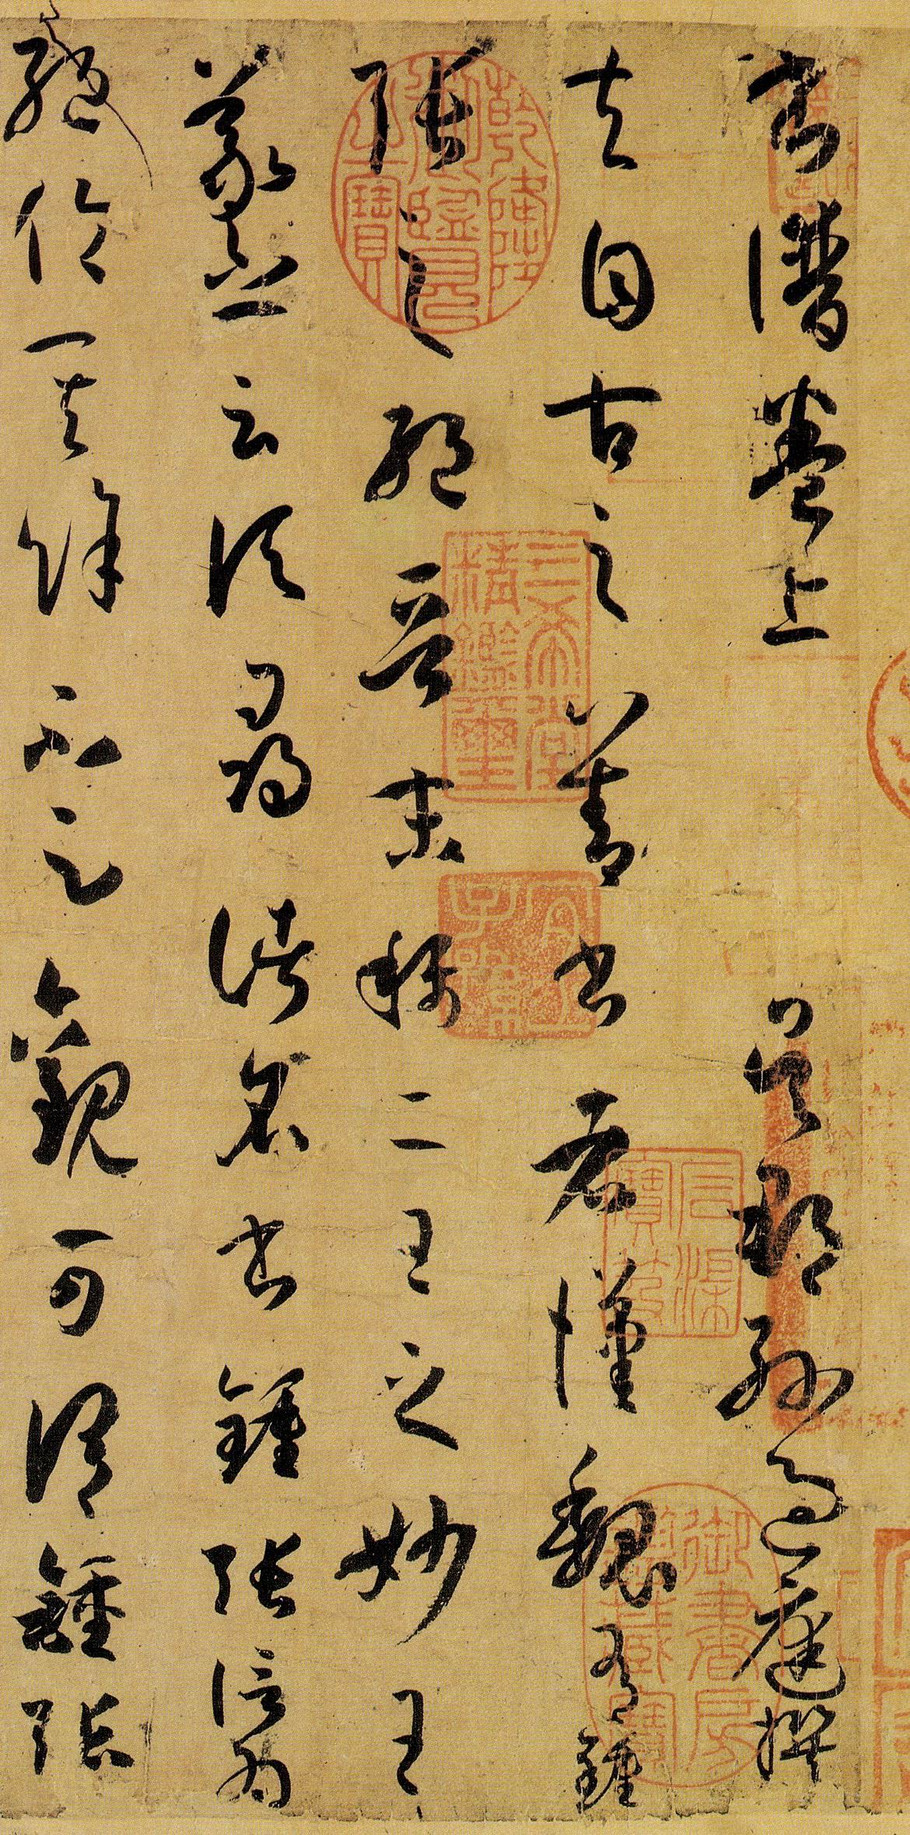 書譜卷上 吳郡孫過庭撰
夫自古之善書者漢魏有鍾
張之絕晉末稱二王之妙王
羲之云頃尋諸名書鍾張信為
絕倫其餘不足觀可謂鍾張
乾隆御覽之寶
三希堂精鑑璽
宜子孫
石渠寶笈
御書房鑑藏寶